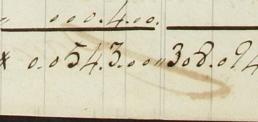 " 0.0.0.4.00.
* 0.0543.00"308.94